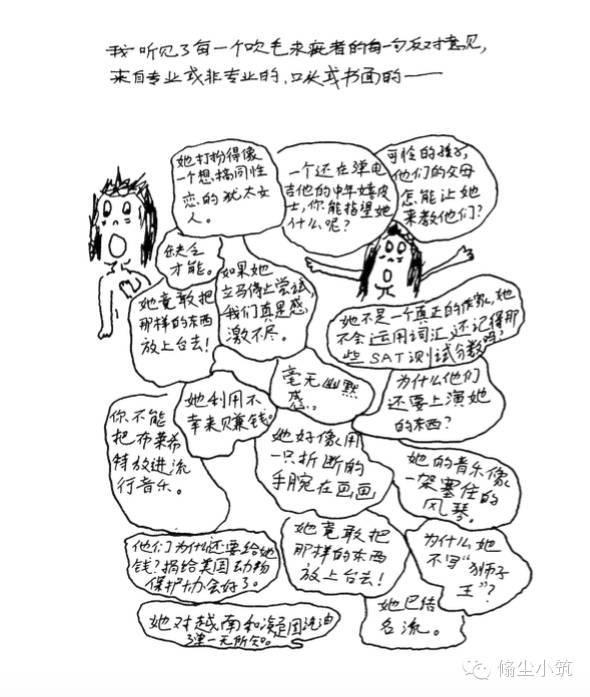 我听见了每一个吹毛求疵者的每一句反对意见，
来自专业或非专业的、口头或书面的——
她打扮得像
一个想搞同性
恋的犹太女
人。
一个还在弹电
吉他的中年嬉皮
士，你能指望她
什么呢？
可怜的孩子，
他们的父母
怎能让她
来教他们？
缺乏
才能。
如果她
立马停止尝试，
我们真是感
激不尽。
她竟敢把
那样的东西
放上台去！
她不是一个真正的作家，她
不会运用词汇，还记得那
些SAT测试分数吗？
毫无幽默
感。
为什么他们
还要上演她
的东西？
她利用不
幸来贝赚钱。
你不能
把布莱希
特放进流
行音乐。
她好像用
一只折断的
手腕在画画
她的音乐像
一架塞住的
风琴。
他们为什么还要给她
钱？捐给美国动物
保护协会好了。
她竟敢把
那样的东西
放上台去！
为什么她
不写“狮子
王”？
她巴结
名流。
她对越南和凝固汽油
弹一无所知。
脩尘小筑